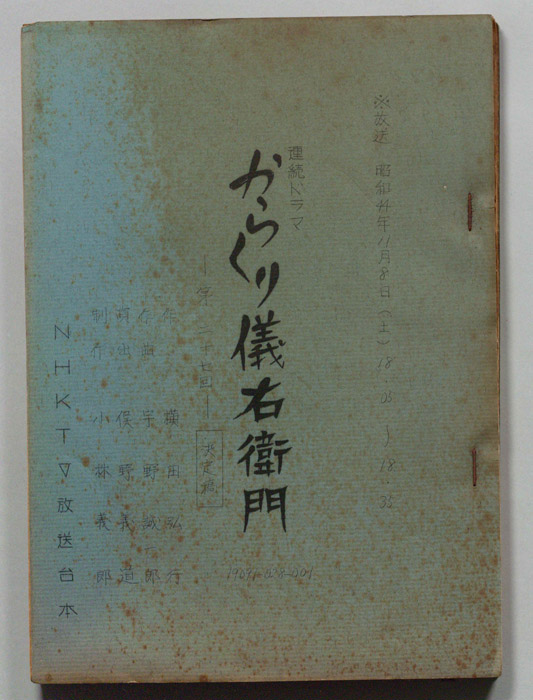 ※放送 昭和44年11月8日(土)18:05〜18:35
連続ドラマ
からくり儀右衛門
―第二十七回―
決定稿
作 横田弘行
作曲 宇野誠一郎
演出 俣野義道
制作 小林義郎
NHKTV放送台本